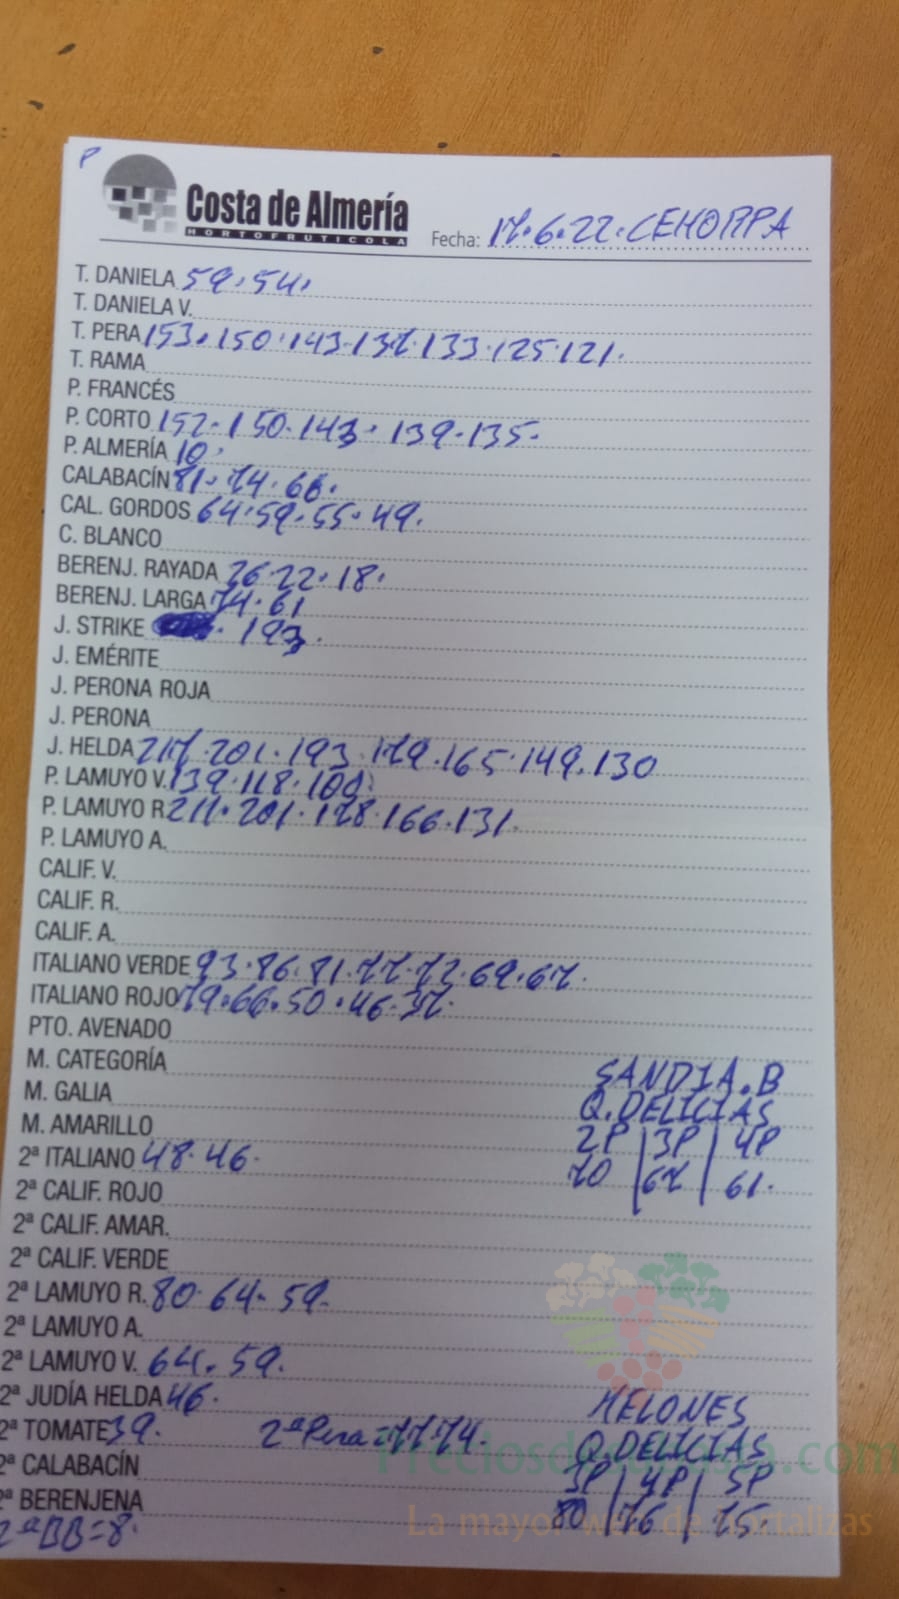 P
Costa de Almería
HORTOFRUTICOLA
Fecha: 17.6.22.CEHORPA
T. DANIELA 59.54.
T. DANIELA V.
T. PERA 153.150.143.137.133.125.121.
T. RAMA
P. FRANCÉS
P. CORTO 152.150.143.139.135.
P. ALMERÍA 10.
CALABACÍN 81.74.66.
CAL. GORDOS 64.59.55.49.
C. BLANCO
BERENJ. RAYADA 26.22.18.
BERENJ. LARGA 74.61
J. STRIKE 193.
J. EMÉRITE
J. PERONA ROJA
J. PERONA
J. HELDA 217.201.193.179.165.149.130
P. LAMUYO V. 139.118.100
P. LAMUYO R. 211.201.178.166.131.
P. LAMUYO A.
CALIF. V.
CALIF. R.
CALIF. A.
ITALIANO VERDE 93.86.81.77.72.69.67.
ITALIANO ROJO 79.66.50.46.37.
PTO. AVENADO
M. CATEGORÍA
SANDIA.B
M. GALIA
Q.DELICIAS
M. AMARILLO
2P | 3P | 4P
2ª ITALIANO 48.46.
70 | 67 | 61.
2ª CALIF. ROJO
2ª CALIF. AMAR.
2ª CALIF. VERDE
2ª LAMUYO R. 80.64.59.
2ª LAMUYO A.
2ª LAMUYO V. 64.59.
2ª JUDÍA HELDA 46.
MELONES
2ª TOMATE 39. 2ª Pera=77.74.
Q.DELICIAS
2ª CALABACÍN
3P | 4P | 5P
2ª BERENJENA
80 | 76 | 75.
2ªBB=8.
Preciosdesubasta.com
La mayor web de hortalizas